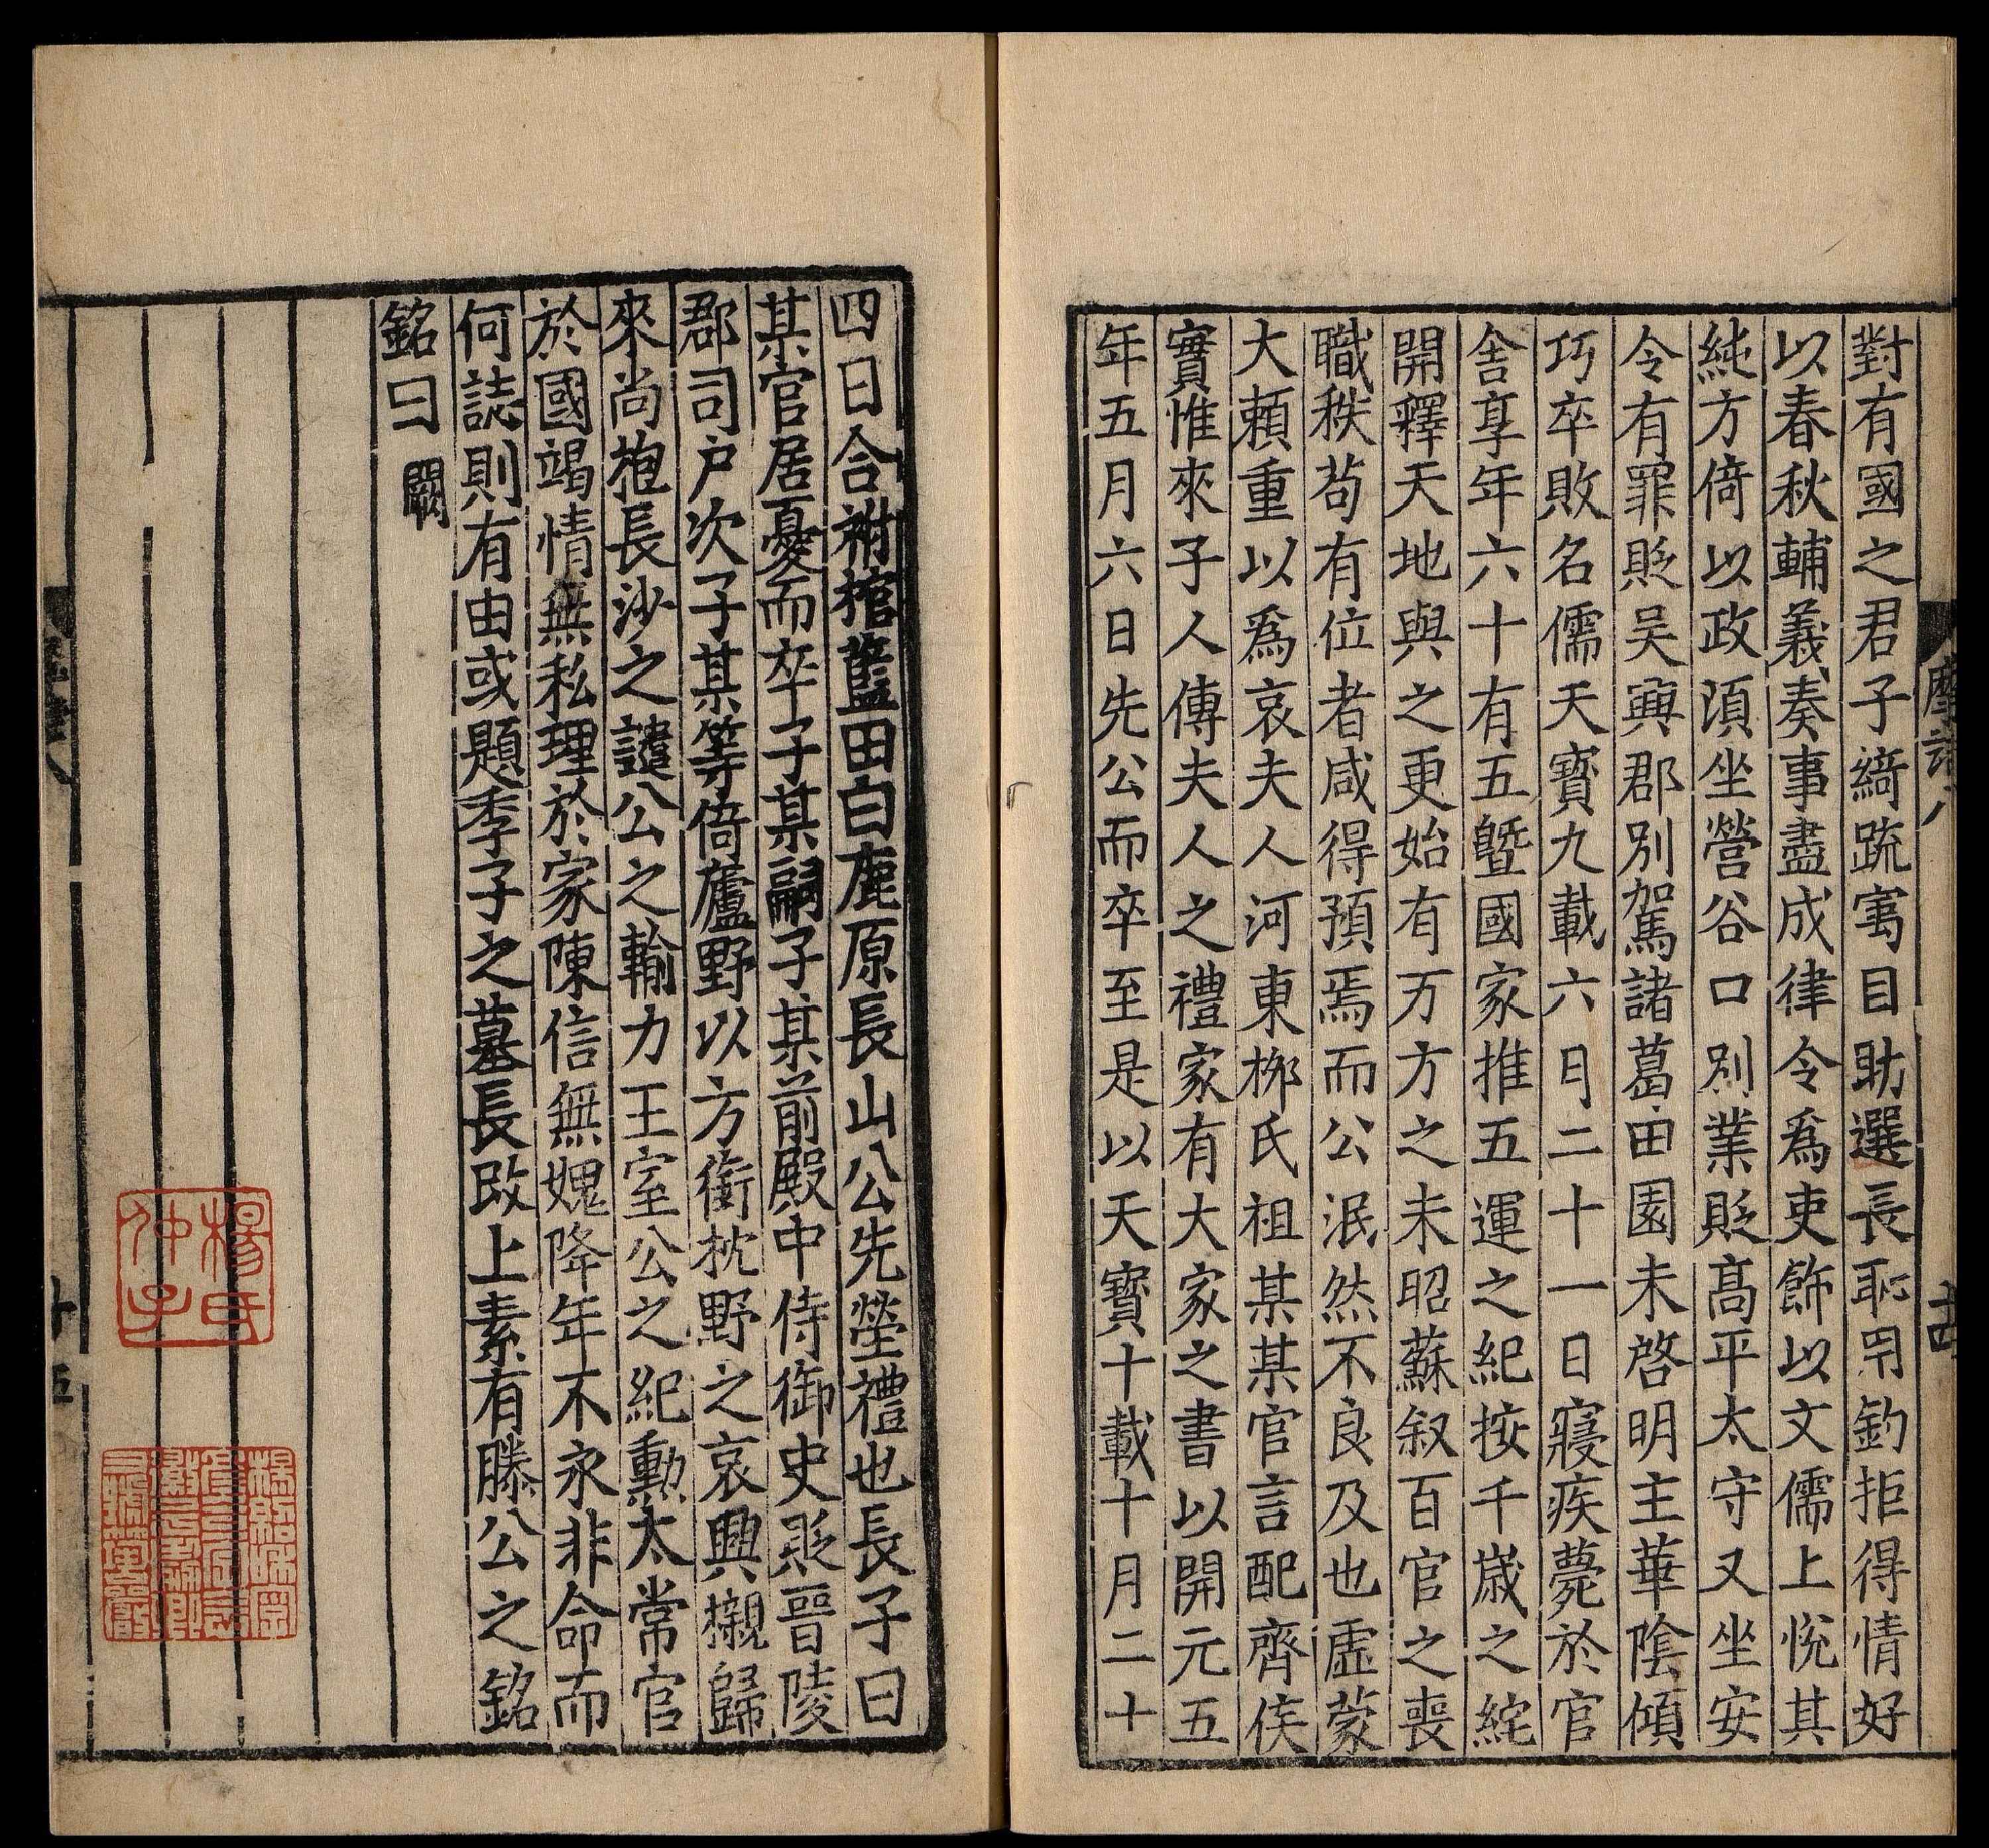 對有國之君子綺䟽寓目助選長耻用鈞拒得情好
以春秋輔義奏事盡成律令爲吏飾以文儒上悅其
純方倚以政湏坐營谷口别業貶髙平太守又坐安
令有罪貶吴興郡别駕諸葛田園未啓明主華陰傾
巧卒敗名儒天寳九載六月二十一日寢疾薨於官
舎享年六十有五曁國家推五運之紀按千歳之綂
開釋天地與之更始有万方之未昭蘇叙百官之喪
職秩苟有位者咸得預焉而公泯然不良及也虛蒙
大賴重以爲哀夫人河東栁氏祖某某官言配齊侯
實惟來子人傳夫人之禮家有大家之書以開元五
年五月六日先公而卒至是以天寳十載十月二十
四日合祔棺藍田白鹿原長山公先塋禮也長子曰
某官居憂而卒子某嗣子某前殿中侍御史貶晉陵
郡司户次子某等倚廬野以方銜枕野之哀興櫬歸
來尚抱長沙之譴公之輸力王室公之紀勳太常官
於國竭情無私理於家陳信無媿降年不永非命而
何誌則有由或題季子之墓長啟上素有滕公之銘
銘曰 闕
楊氏
仲子
十四
十五